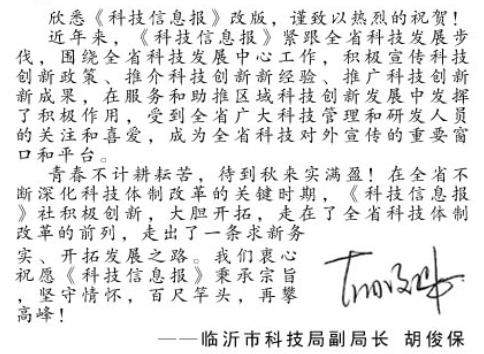 欣悉《科技信息报》改版，谨致以热烈的祝贺！
近年来，《科技信息报》紧跟全省科技发展步
伐，围绕全省科技发展中心工作，积极宣传科技
创新政策、推介科技创新新经验、推广科技创新
新成果，在服务和助推区域科技创新发展中发挥
了积极作用，受到全省广大科技管理和研发人员
的关注和喜爱，成为全省科技对外宣传的重要窗
口和平台。
青春不计耕耘苦，待到秋来实满盈！在全省不
断深化科技体制改革的关键时期，《科技信息报
》社积极创新，大胆开拓，走在了全省科技体制
改革的前列，走出了一条求新务
实、开拓发展之路。我们衷心
祝愿《科技信息报》秉承宗旨
，坚守情怀，百尺竿头，再攀
高峰！
胡俊保
——临沂市科技局副局长 胡俊保